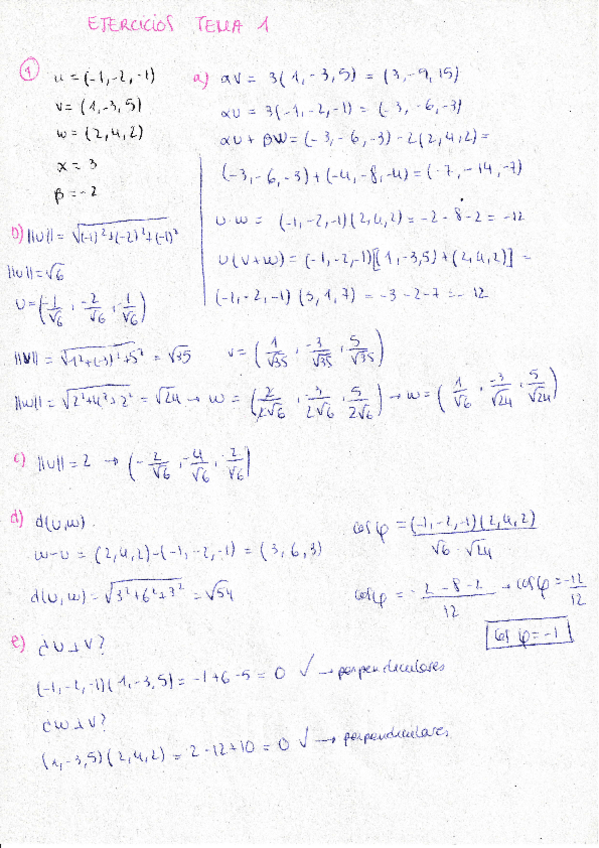 EJERCICIOS TEMA 1
① u = (-1,-2,-1)
v = (1,-3,5)
w = (2,4,2)
α = 3
β = -2
a) αv = 3(1,-3,5) = (3,-9,15)
αu = 3(-1,-2,-1) = (-3,-6,-3)
αu + βw = (-3,-6,-3) - 2(2,4,2) =
(-3,-6,-3) + (-4,-8,-4) = (-7,-14,-7)
u·w = (-1,-2,-1)(2,4,2) = -2-8-2 = -12
u(v+w) = (-1,-2,-1)[(1,-3,5)+(2,4,2)] =
(-1,-2,-1)(3,1,7) = -3-2-7 = -12
b) ||u|| = √(-1)²+(-2)²+(-1)²
||u|| = √6
u = (-1/√6, -2/√6, -1/√6)
||v|| = √1²+(-3)²+5² = √35 v = (1/√35, -3/√35, 5/√35)
||w|| = √2²+4²+2² = √24 → w = (2/2√6, -3/2√6, 5/2√6) → w = (1/√6, -3/√24, 5/√24)
c) ||u|| = 2 → (-2/√6, -4/√6, -2/√6)
d) d(u,w)
w-u = (2,4,2)-(-1,-2,-1) = (3,6,3)
d(u,w) = √3²+6²+3² = √54
cos φ = (-1,-2,-1)(2,4,2)/√6·√24
cos φ = -2-8-2/12 → cos φ = -12/12
cos φ = -1
e) ¿u⊥v?
(-1,-2,-1)(1,-3,5) = -1+6-5 = 0 ✓ → perpendiculares
¿w⊥v?
(1,-3,5)(2,4,2) = 2-12+10 = 0 ✓ → perpendiculares